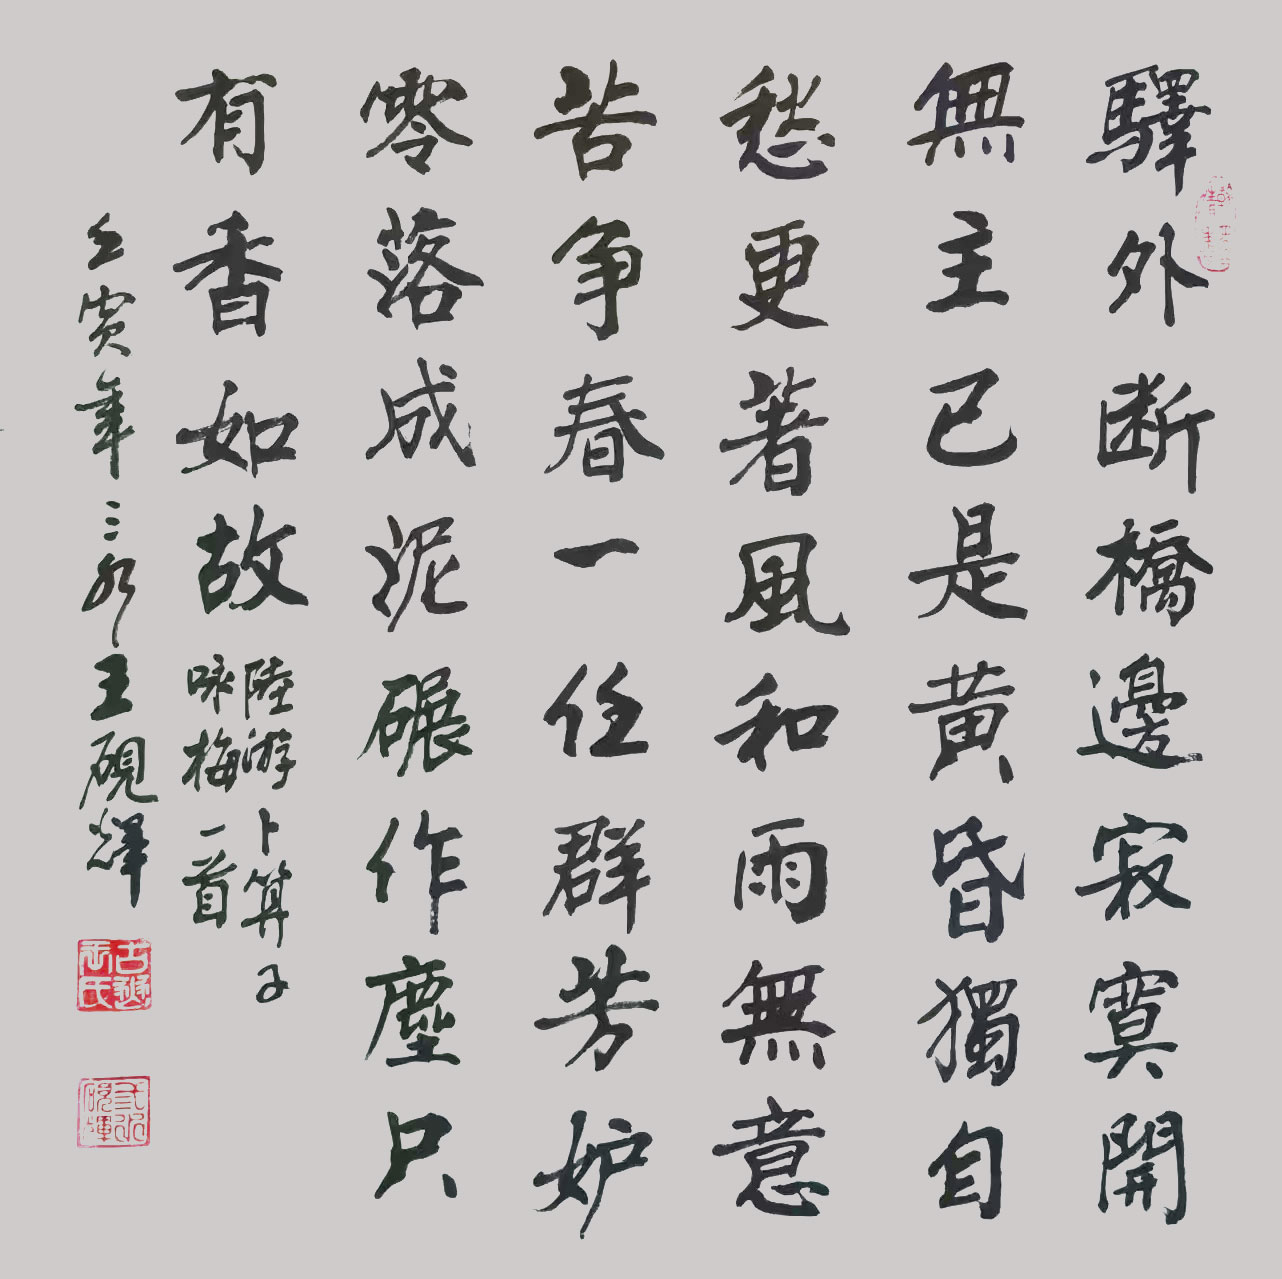 驛外断橋邊寂寞開
無主已是黄昏獨自
愁更著風和雨無意
苦争春一任群芳妒
零落成泥碾作塵只
有香如故
陸游卜算子
咏梅一首
壬寅年三水王硯輝